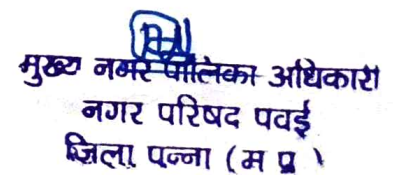 मुख्य नगर पालिका अधिकारी
नगर परिषद पवई
जिला पन्ना (म प्र)